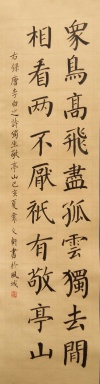 眾鳥高飛盡孤雲獨去閒
相看两不厭衹有敬亭山
右錄唐李白之詩獨坐敬亭山己亥夏李文新書於